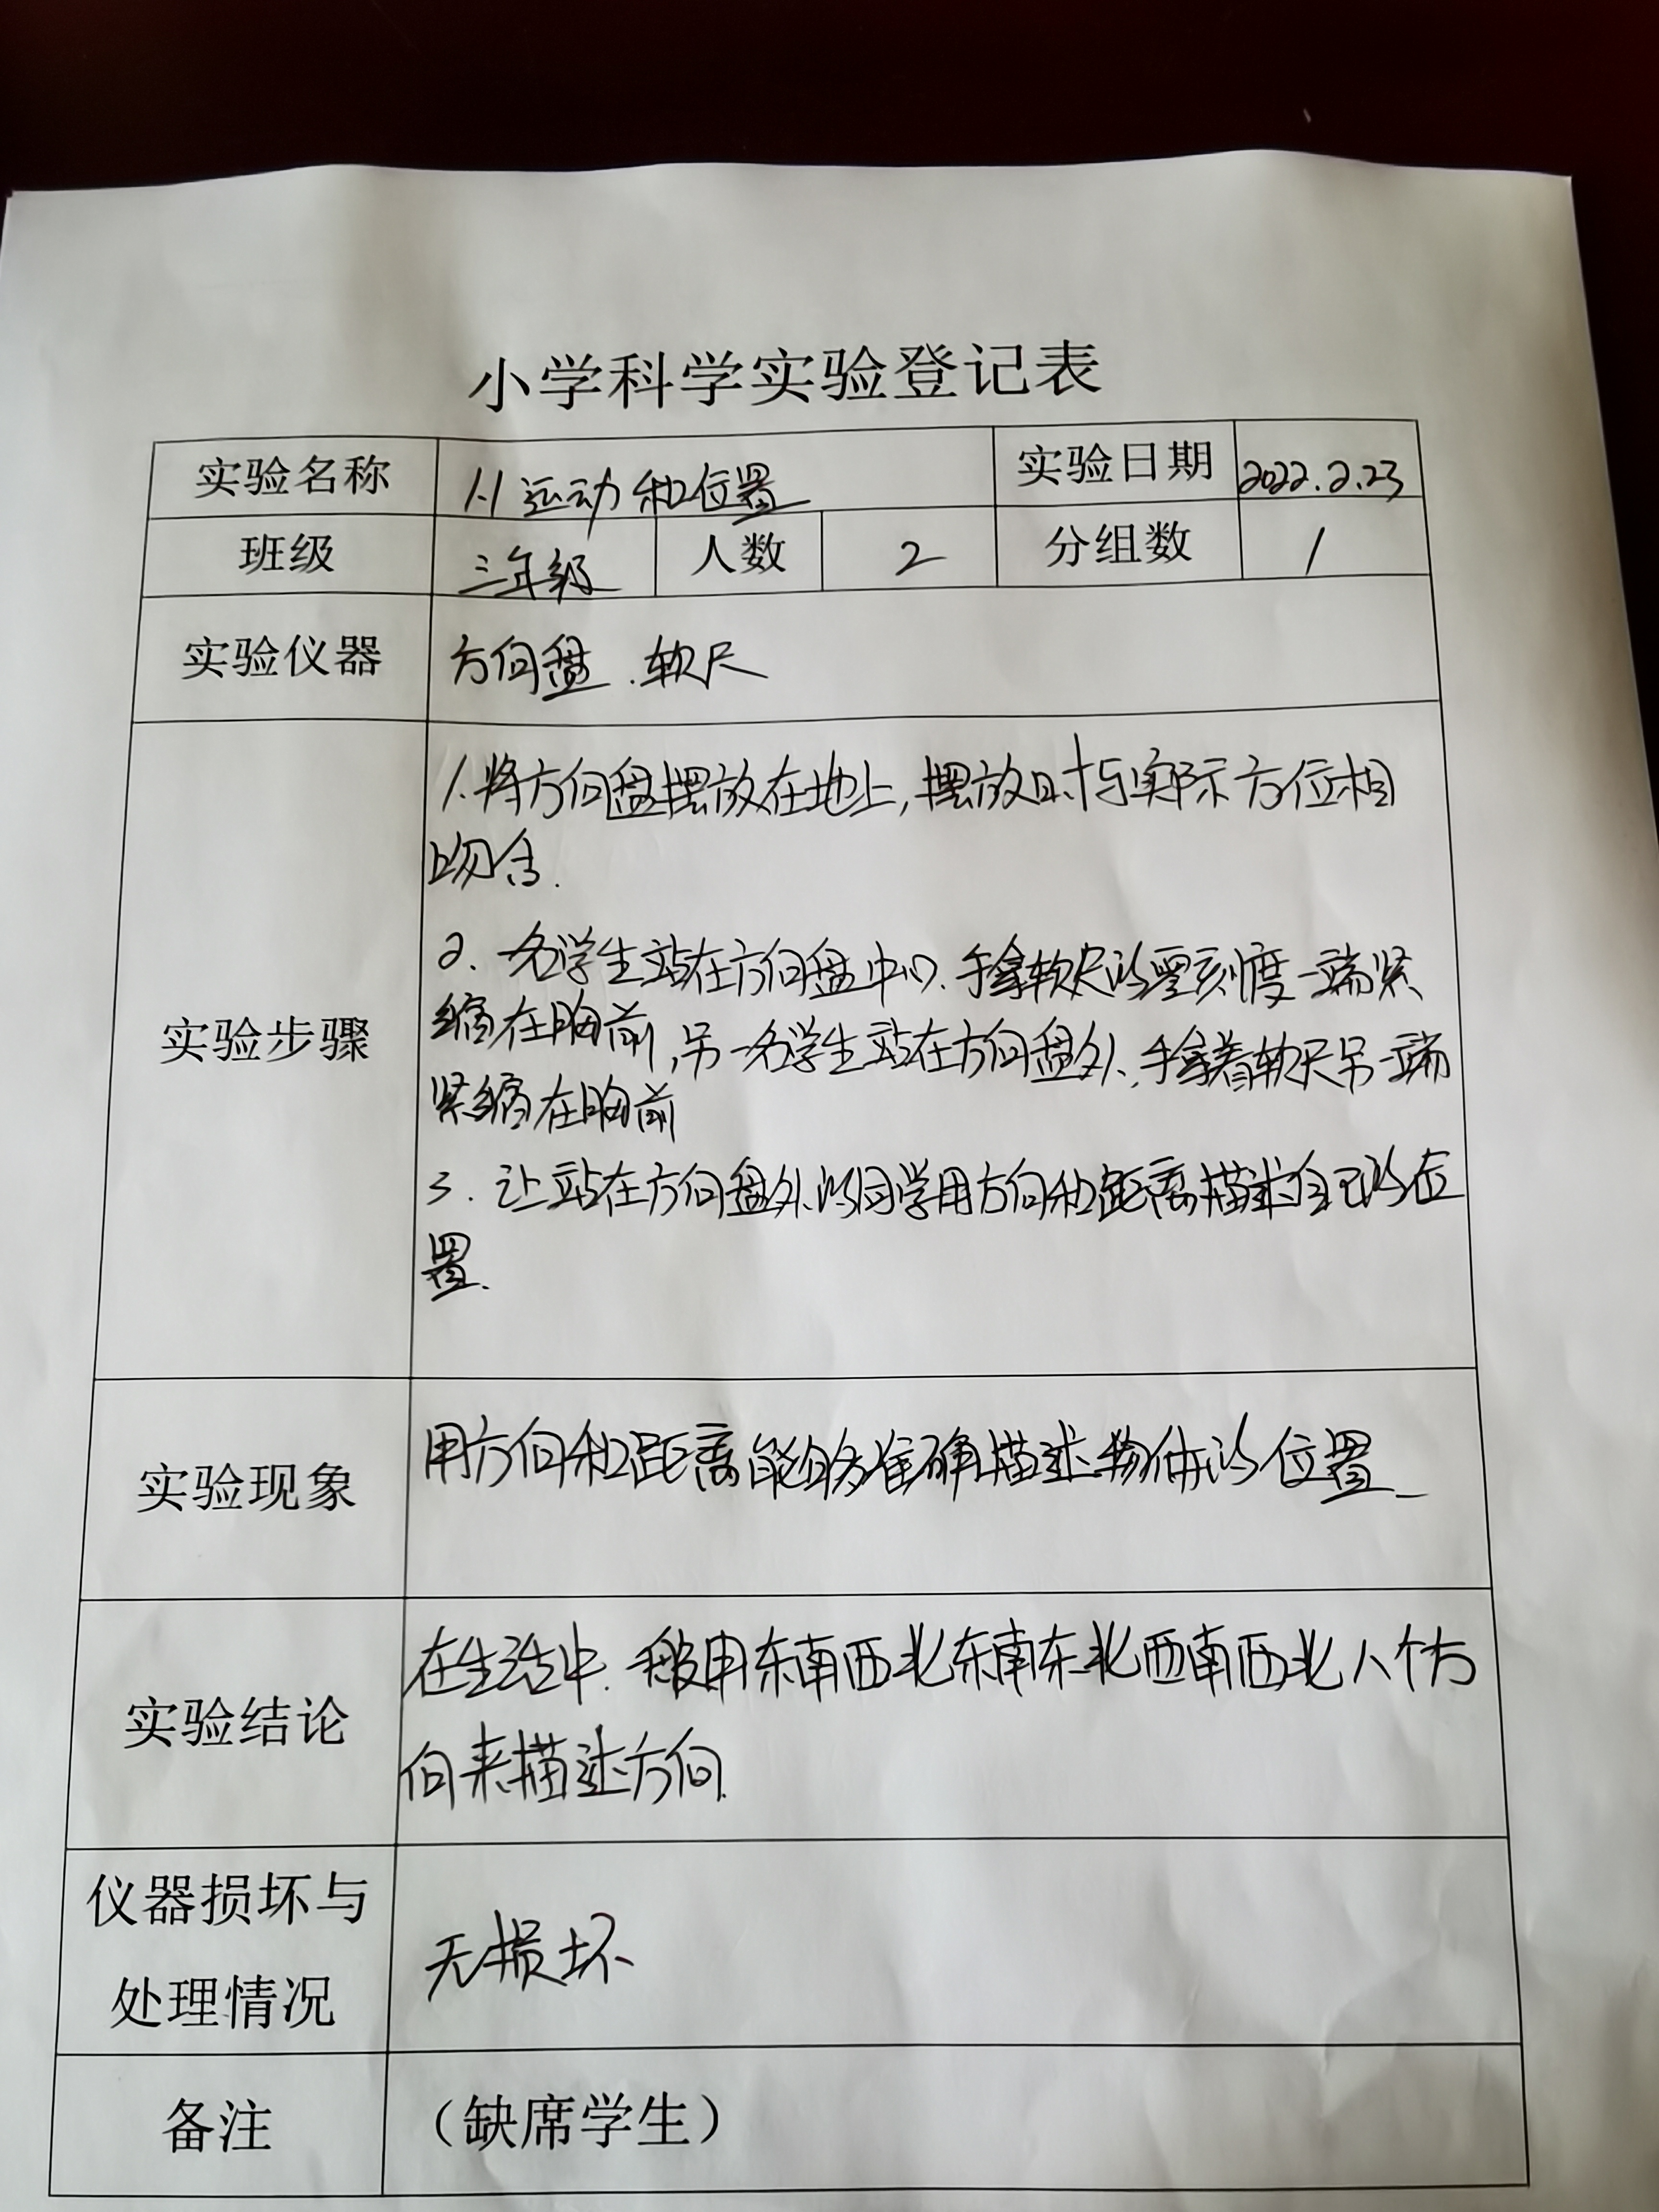 小学科学实验登记表
实验名称 1.1 运动和位置 实验日期 2022.2.23
班级 三年级 人数 2 分组数 1
实验仪器 方向盘、软尺
1.将方向盘摆放在地上,摆放时与实际方位相
吻合.
2、一名学生站在方向盘中心、手拿软尺的零刻度一端紧
缩在胸前,另一名学生站在方向盘外、手拿着软尺另一端
实验步骤
紧缩在胸前
3、让站在方向盘外的同学用方向和距离描述自己的位
置.
实验现象 用方向和距离能够准确描述物体的位置
在生活中、一般用东南西北东南东北西南西北八个方
实验结论
向来描述方向.
仪器损坏与
处理情况
无损坏
备注 （缺席学生）